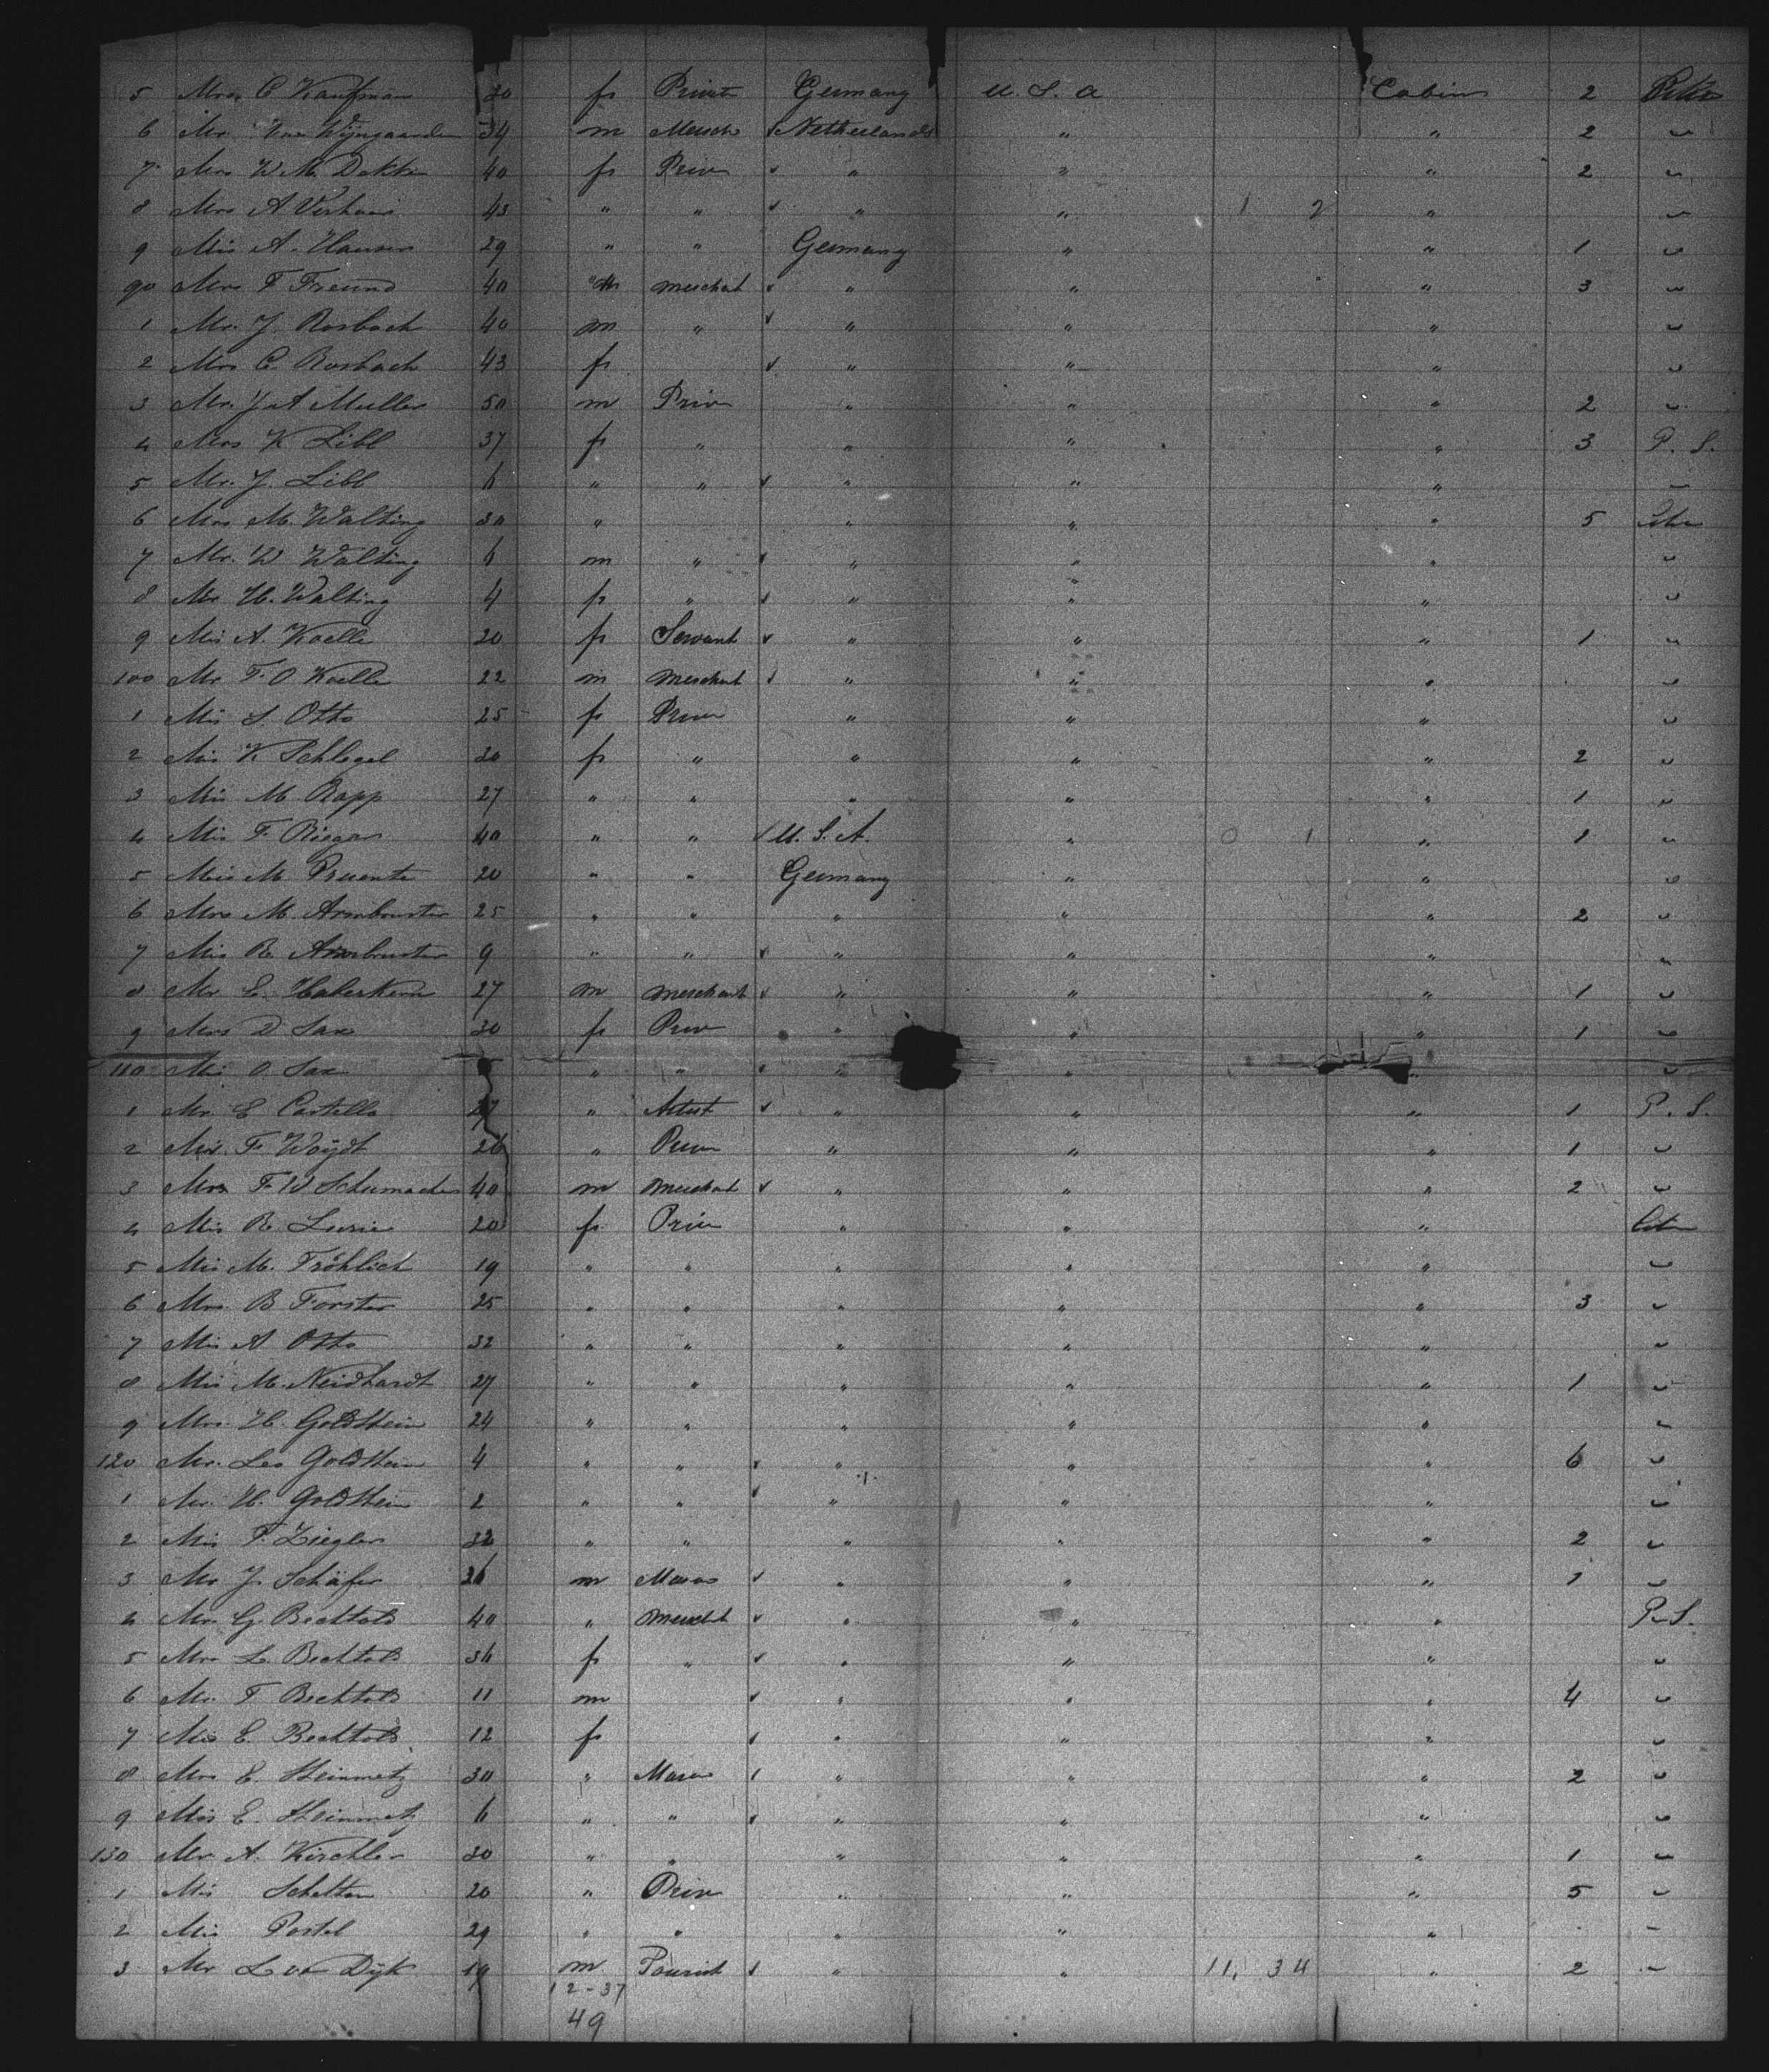 5 Mrs C Kaufman 30 f Private Germany U. S. A Cabin 2
6 Mr. Van Wijngaarden 34 m Merch Netherlands " " 2 "
7 Mrs W M Dekker 40 f Priv " " " 2 "
8 Mrs A 43 " " " " 1 2 " "
9 Mis A. Hansen 29 " " Germany " " 1 "
90 F Freund 40 m merchant " " " 3 "
1 Mr. J Rosbach 40 m " " " " "
2 Mrs C. Rosbach 43 f " " " "
3 Mr. J A Muller 50 m Priv " " " 2 "
4 Mrs K Libl 37 f " " " " 3 P. S.
5 Mr. J. Libl 6 " " " " " "
6 Mrs M. Walting 30 " " " " 5
7 Mr. W Walting 6 m " " " " "
8 H. Walting 4 f " " " " "
9 Mis A. Koelle 20 f Servant " " " 1 "
100 Mr F. O Koelle 22 m Merchant " " " "
1 Mis S. Otto 25 f Priv " " " "
2 Mis K Schlegel 20 f " " " " 2 "
3 Mis M Rapp 27 " " " " " 1 "
4 Mis F. 40 " " U. S. A. " 0 1 " 1 "
5 Mis M. Pruente 20 " " Germany " " "
6 Mrs M. Armbruster 25 " " " " " 2 "
7 Mis R. Armbruster 9 " " " " " "
8 Mr E. Haberkern 27 m merchant " " " 1 "
9 Mrs D Sax 30 f Priv " " " 1 "
110 Mis O. Sax " " " " " "
1 E Castello 27 " Artist " " " 1 P. S.
2 F. Woydt 26 " Priv " " " 1 "
3 F. W Schumacher 40 m merchant " " " 2 "
4 Mis R. Lurie 20 f Priv " " "
5 Mis M. Fröhlich 19 " " " " " "
6 Mrs B Forster 25 " " " " " 3 "
7 Mis A Otto 32 " " " " " "
8 Mis M. Neidhardt 27 " " " " " 1 "
9 Mrs H. Goldstein 24 " " " " " "
120 Mr. Leo Goldstein 4 " " " " " 6 "
1 H. Goldstein 2 " " " " " "
2 Mis F. Ziegler 32 " " " " " 2 "
3 Mr J. Schäfer 26 m " " " 1 "
4 Mr. G Bechtold 40 " Mercht " " " P. S.
5 Mrs L. Bechtold 36 f " " " " "
6 Mr. F Bechtold 11 m " " " 4 "
7 Mis E. Bechtold 12 f " " " "
8 Mrs E. Steinmetz 30 " " " " 2 "
9 Mis E. Steinmetz 6 " " " " " "
130 Mr A. Kirchler 20 " " " " " 1 "
1 Mis Schelten 20 " Priv " " " 5 "
2 Mis Postel 29 " " " " " "
3 Mr L van Dijk 19 m Tourist " " 11, 34 " 2 "
12-37
49